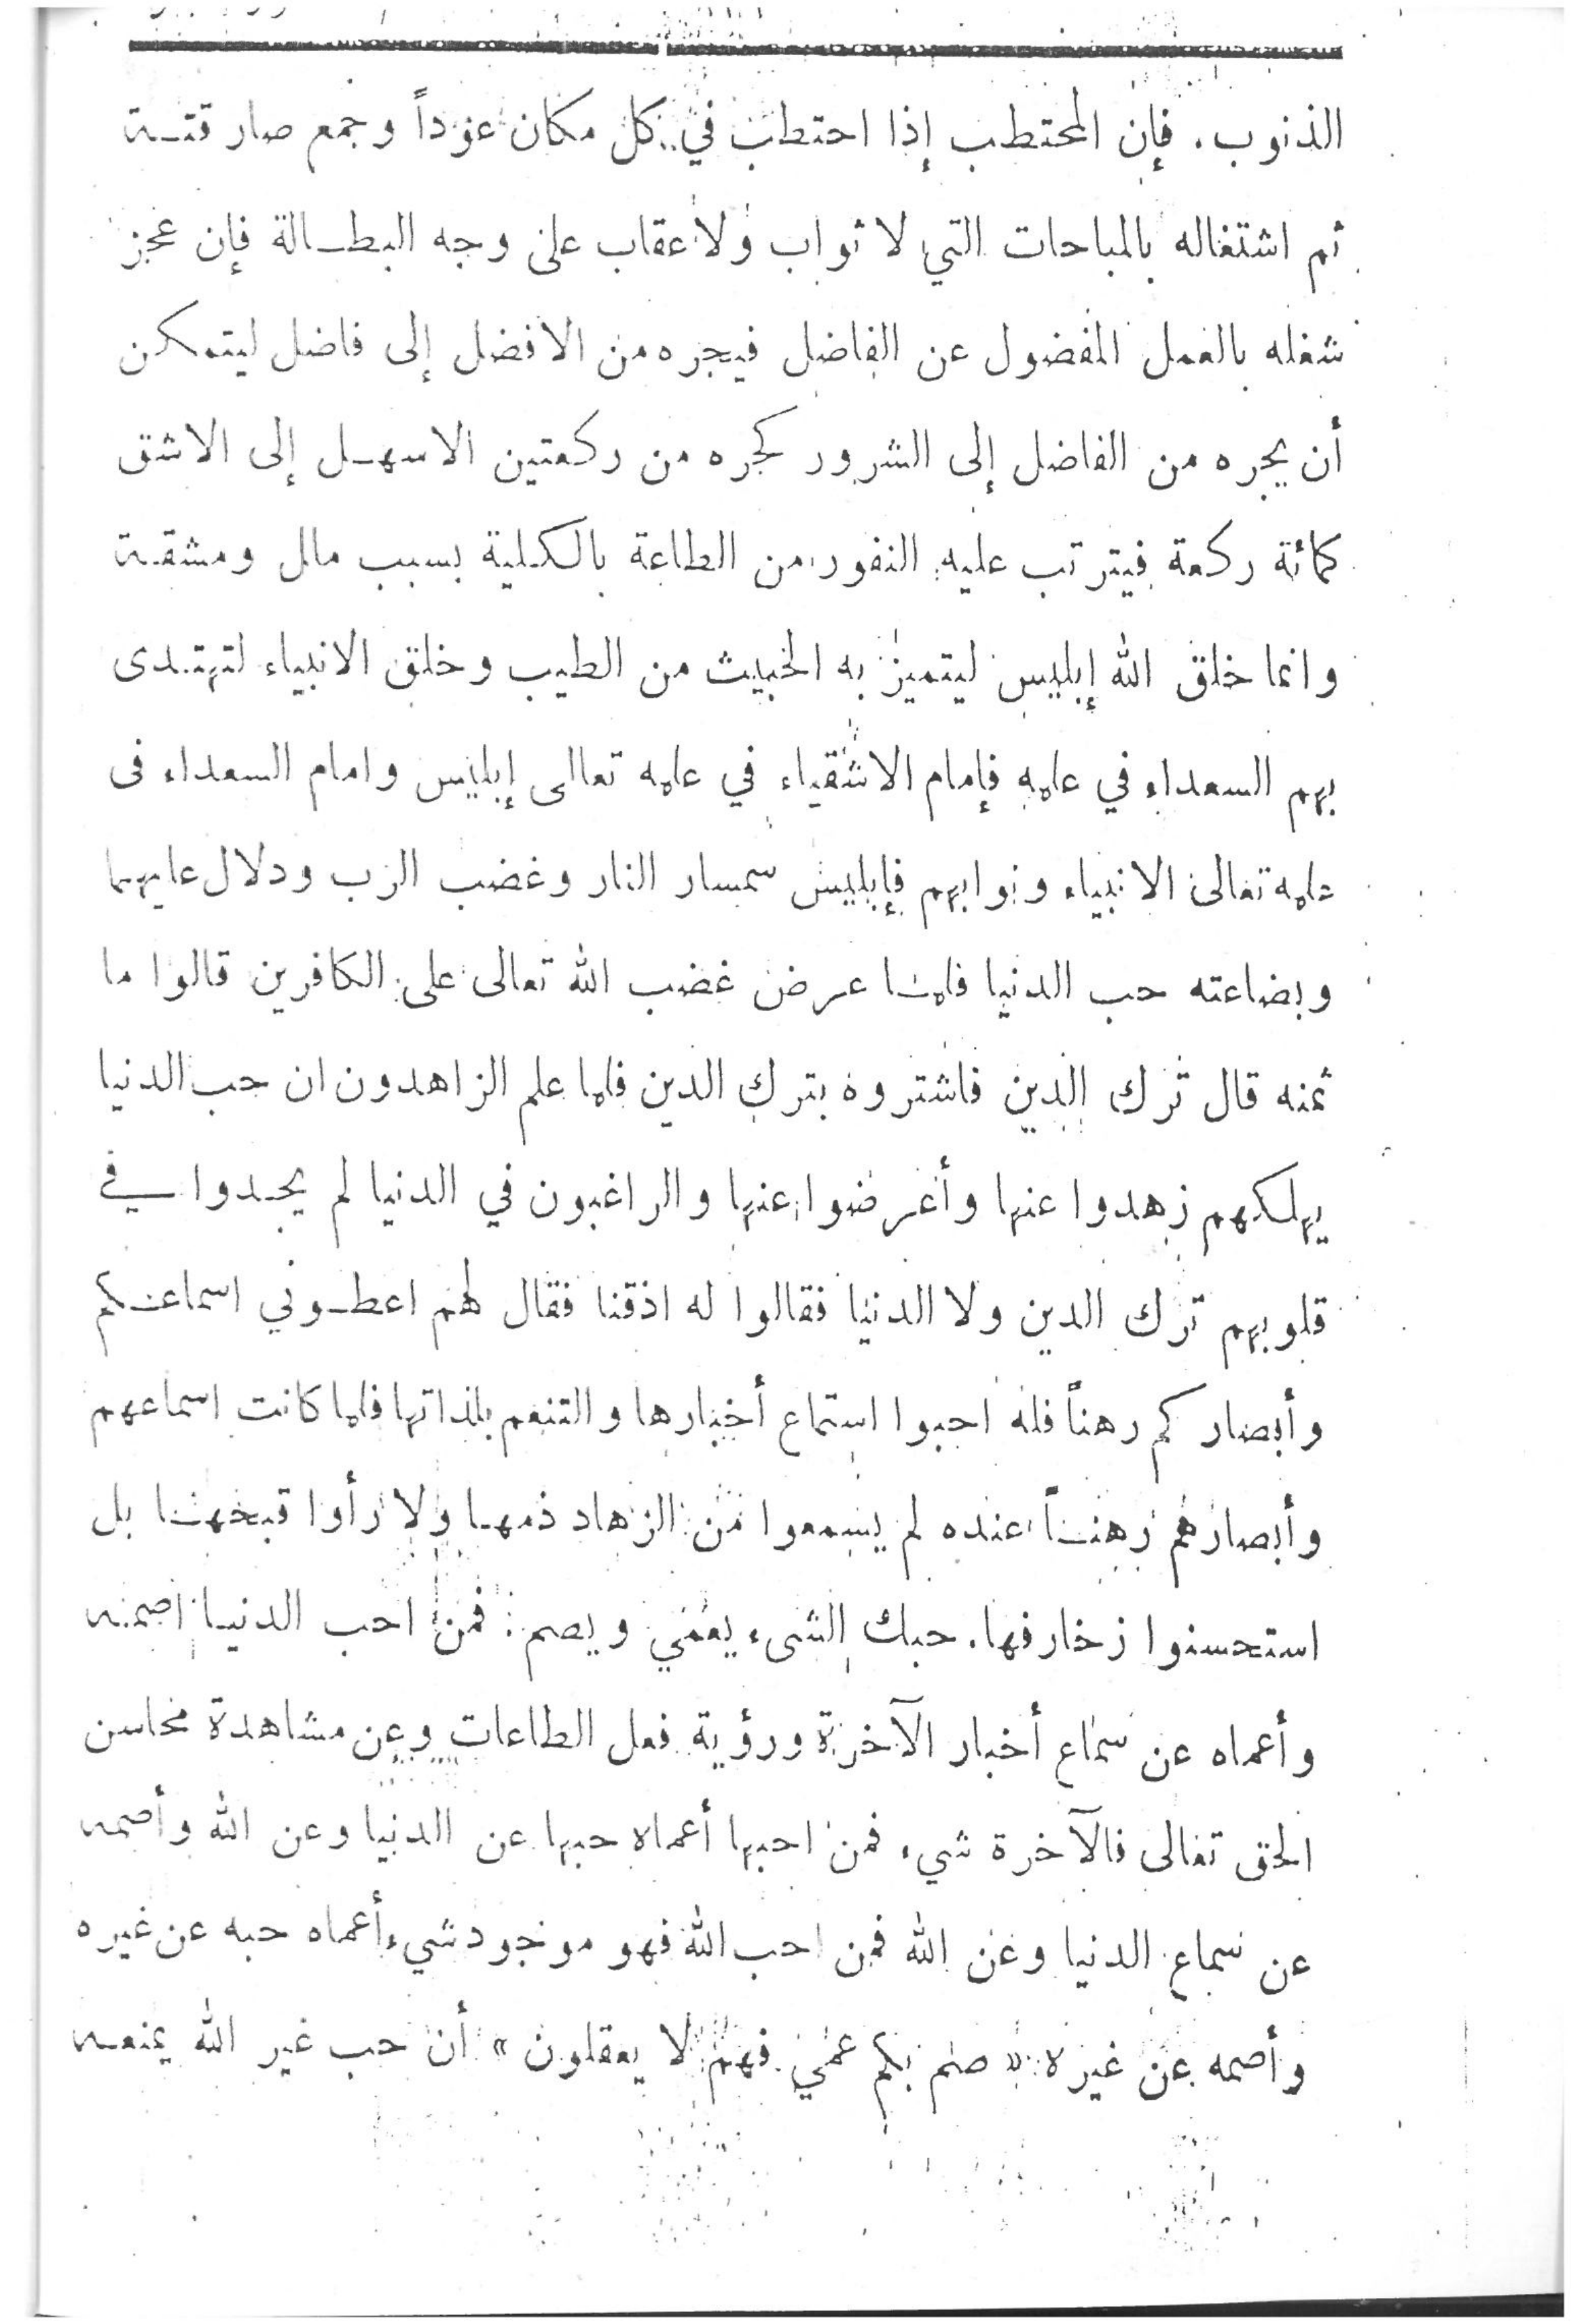 الذنوب. فإن المحتطب إذا احتطب في كل مكان عوداً وجمع صار قتة
ثم اشتغاله بالمباحات التي لا ثواب ولا عقاب على وجه البطالة فإن عجز
شغله بالعمل المفضول عن الفاضل فيجره من الافضل إلى فاضل ليتمكن
أن يجره من الفاضل إلى الشرور كجره من ركعتين الاسهل إلى الاشق
كمائة ركعة فيترتب عليه النفور من الطاعة بالكلية بسبب مالل ومشقة
وانما خلق الله إبليس ليتميز به الخبيث من الطيب وخلق الانبياء لتهتدى
بهم السعداء في علمه فإمام الاشقياء في علمه تعالى إبليس وامام السعداء فى
علمه تعالى الانبياء ونوابهم فإبليس سمسار النار وغضب الرب ودلال عليهما
وبضاعته حب الدنيا فلما عرض غضب الله تعالى على الكافرين قالوا ما
ثمنه قال ترك الدين فاشتروه بترك الدين فلما علم الزاهدون ان حب الدنيا
يهلكهم زهدوا عنها وأعرضوا عنها والراغبون في الدنيا لم يجدوا في
قلوبهم ترك الدين ولا الدنيا فقالوا له اذقنا فقال لهم اعطوني اسماعكم
وأبصاركم رهناً فله احبوا استماع أخبارها والتنعم بلذاتها فلما كانت اسماعهم
وأبصارهم رهناً عنده لم يسمعوا من الزهاد ذمها ولا رأوا قبحها بل
استحسنوا زخارفها. حبك الشىء يعمي ويصم: فمن احب الدنيا اصمه
وأعماه عن سماع أخبار الآخرة ورؤية فعل الطاعات وعن مشاهدة محاسن
الحق تعالى فالآخرة شيء فمن احبها أعماه حبها عن الدنيا وعن الله وأصمه
عن سماع الدنيا وعن الله فمن احب الله فهو موجود شيء أعماه حبه عن غيره
وأصمه عن غيره « صم بكم عمي فهم لا يعقلون » أن حب غير الله يمنعه